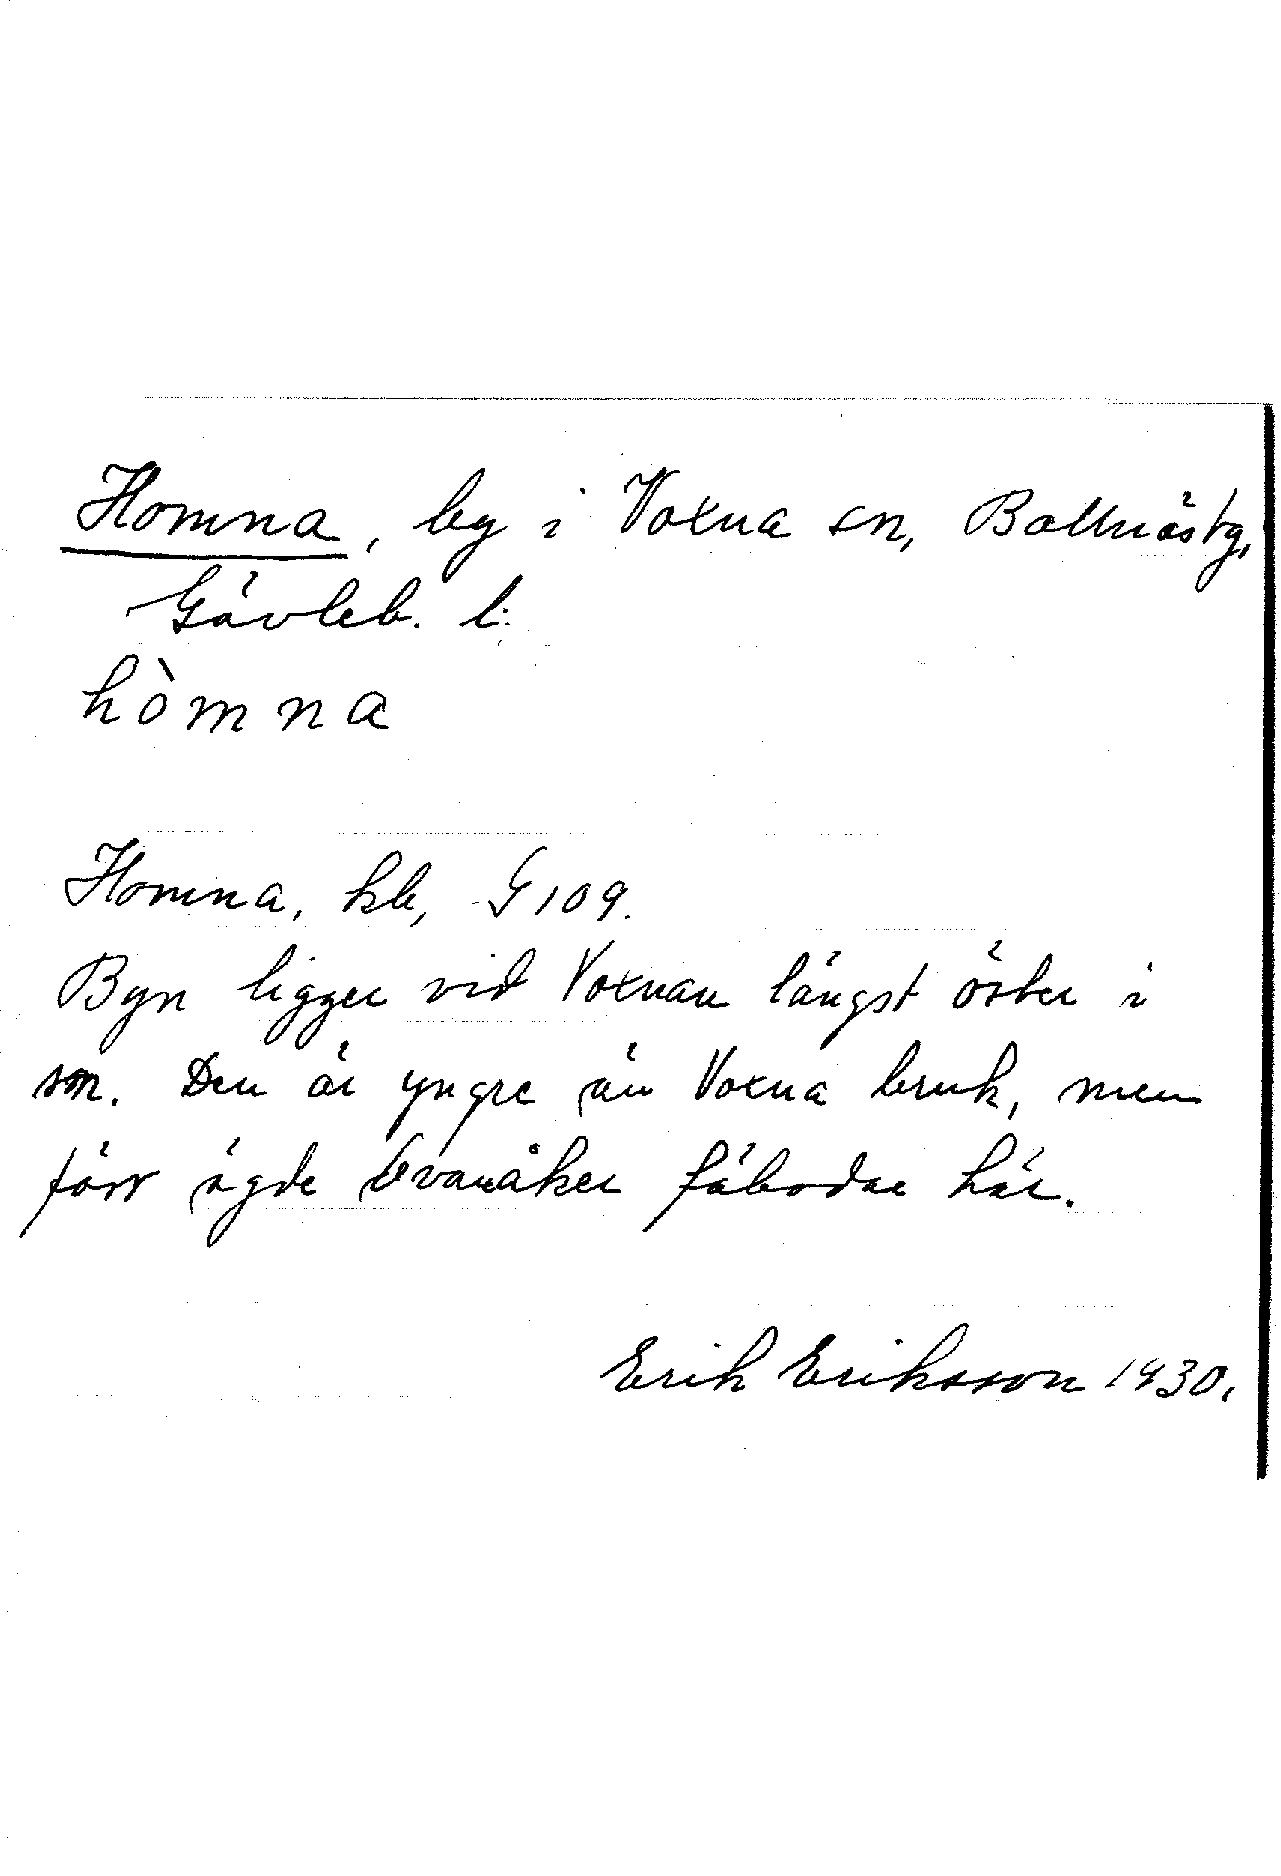 Homna, by i Voxna sn, Bollnäs tg,
Gävleb. l:
hòmna
Homna, kb, G 109.
Byn ligger vid Voxnan längst öster i
sn. Den är yngre än Voxna bruk, men
förr ägde Ovanåker fäbodar här.
Erik Eriksson 1930.